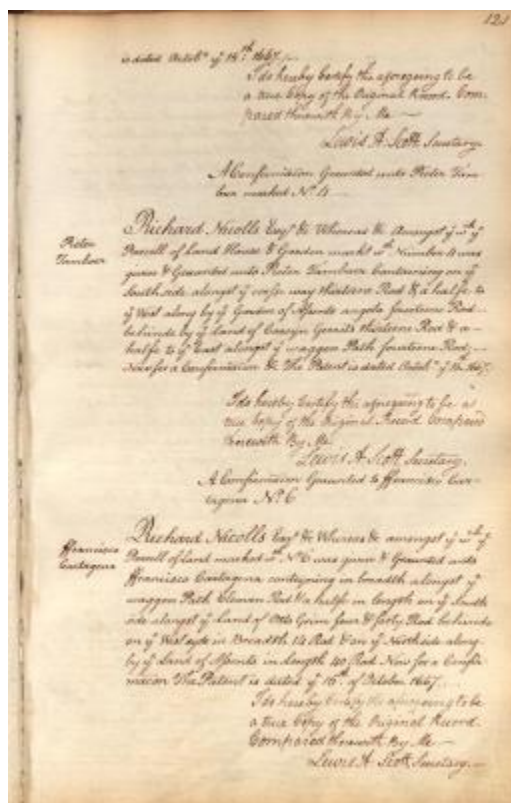 121
is dated Octobr ye 15th 1667.
I do hereby Certify the aforegoing to be
a true Copy of the Original Record. Com-
pared therewith By Me
Lewis A Scott Secretary
A Confirmation Graunted unto Pieter Tam-
boer marked No. 4
Pieter
Tamboer
Richard Nicolls Esqr &c Whereas &c Amongst ye
Parcell of Land House & Garden markt wth Number 4 was
given & Graunted unto Pieter Tamboer Containing on ye
Southside alongst ye way thirteene Rod & a halfe to
ye West along by ye Garden of Assento angola fourteene Rod
behinde by ye Land of Thirteene Rod & a
halfe to ye East alongst ye waggon Path fourteene Rod
Now for a Confirmation &c The Patent is dated Octobr ye 1667.
I do hereby Certify the aforegoing to be a
true Copy of the Original Record Compared
therewith By Me
Lewis A Scott Secretary.
A Confirmation Graunted to ffrancisco Car-
tagena No. 6
ffrancisco
Cartagena
Richard Nicolls Esqr &c Whereas &c amongst ye
Parcell of Land marked wth No 6 was given & Graunted unto
ffrancisco Cartagena containing in breadth alongst ye
waggon Path Eleaven Rod & a halfe in length on ye South
side alongst ye Land of Otto Grim four & forty Rod behinde
on ye West side in Breadth 14 Rod & on ye Northside along
by ye Land of Assento in Length 40 Rod Now for a Confir
macon The Patent is dated ye 16th of October 1667.
I do hereby Certify the aforegoing to be
a true Copy of the Original Record.
Compared therewith By Me
Lewis A Scott Secretary.